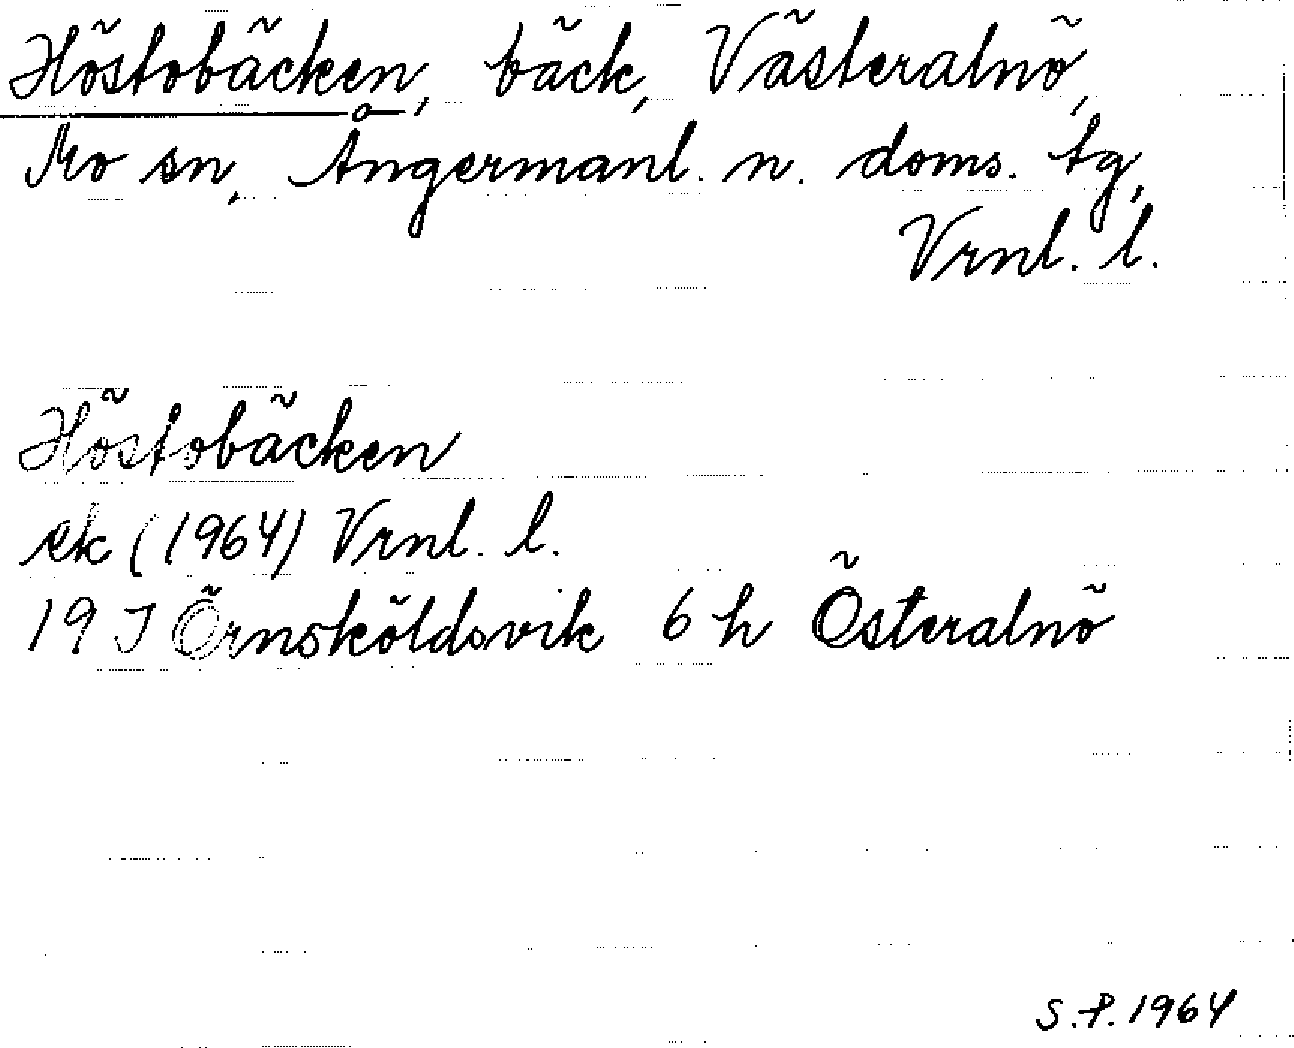 Höstobäcken, bäck, Västeralnö,
Mo sn, Ångermanl. n. doms. tg,
Vrnl. l.
Höstobäcken
ek (1964) Vrnl. l.
19 J Örnsköldsvik 6 h Österalnö
S.P. 1964